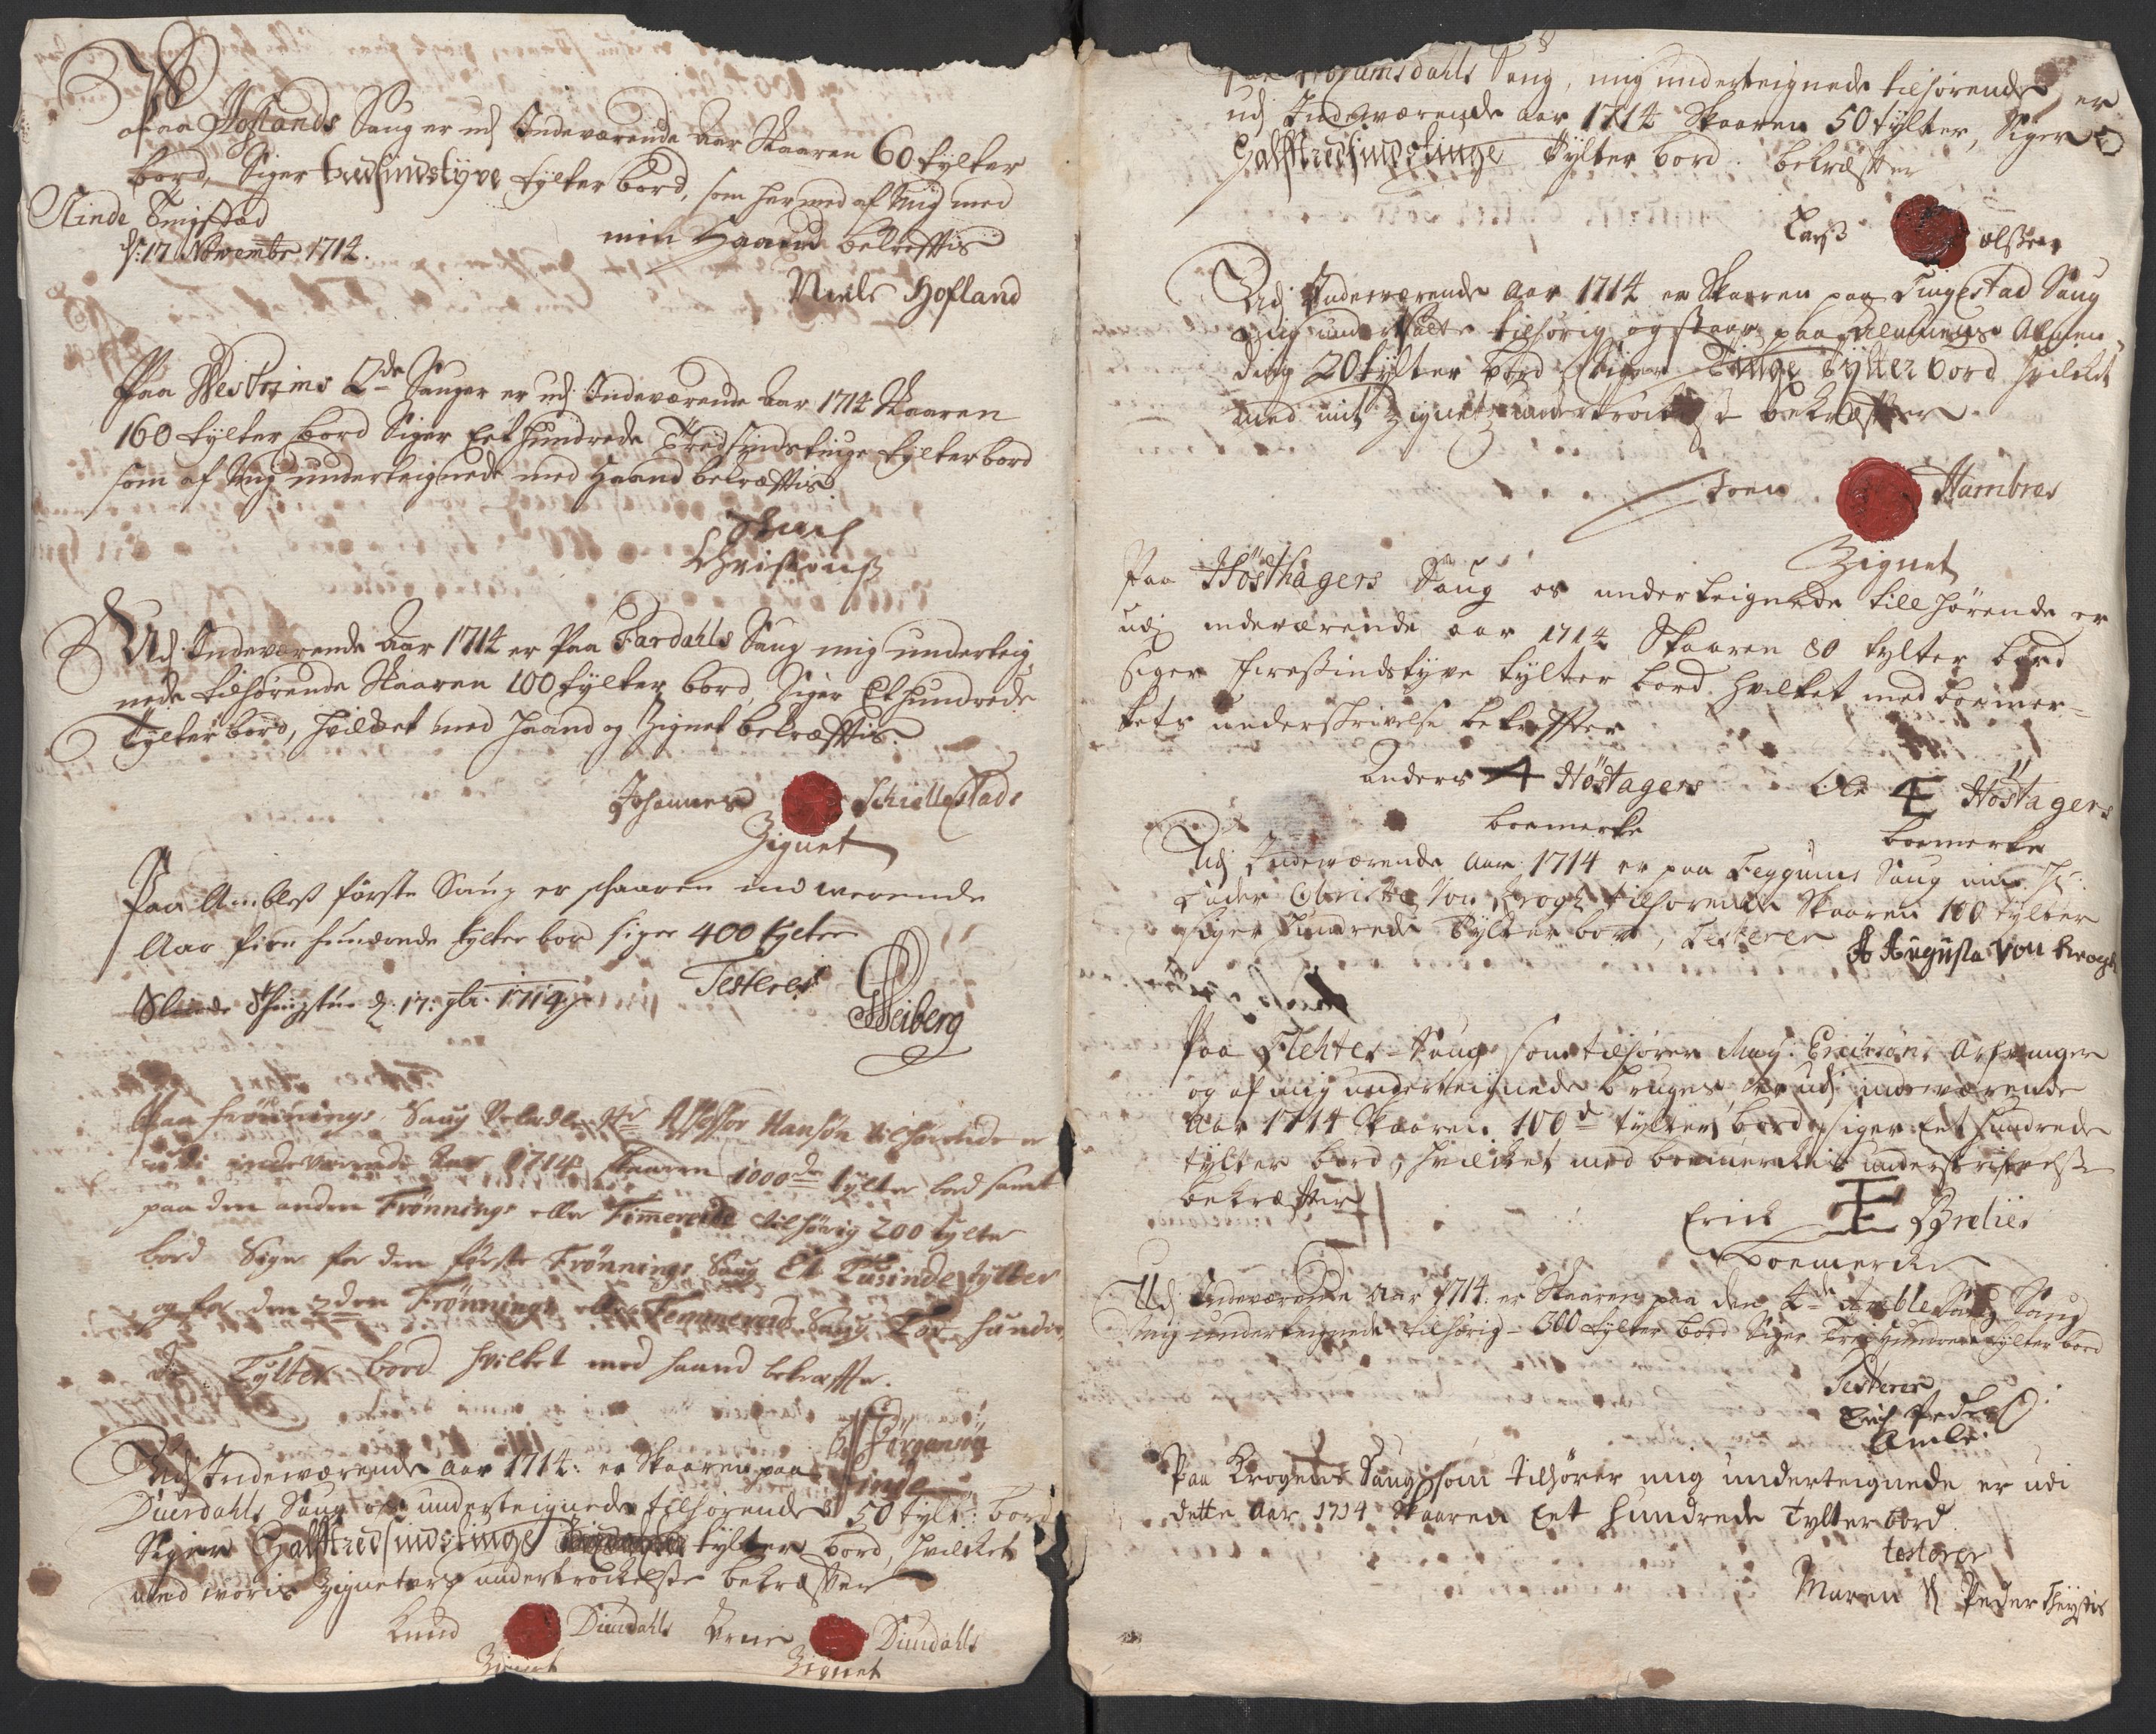 Paa Hoflands Saug er udj Indeværende Aar Skaaren 60 tylter
bord, Siger tredsindstyve tylter bord, som hermed af Mig med
min Haand bekreftis
Slinde Tingstad
d: 17 Novembr 1714.
Niels Hofland
Paa Westrims 2de Sauger er udj Indeværende Aar 1714 Skaaren
160 tylter bord Siger Eet hundrede Tredsindstiuge tylter bord
som af Mig underteignede med Haand bekræftis
Christens
Udj Indeværende Aar 1714 er Paa Fardahls Saug mig underteig
nede tilhørende Skaaren 100 tylter bord, Siger Et hundrede
Tylter bord, hvilket med Haand og Zignet bekræftis.
Johannes Schiellestads
Zignet
Paa Ambles første Saug er skaaren indwerende
Aar fire hundrede tylter bor siger 400 tylter
Testerer
Slinde d: 17: 9br: 1714
Leiberg
Paa Frønnings Saug Velædle Hr Assessor Hansøn tilhørende er
udi indeværende Aar 1714 skaaren 1000de tylter bord samt
paa den anden Frønnings eller Timereide tilhørig 200 tylter
bord Siger for den første Frønnings Saug Et Tusinde tylter
og for den 2den Frønnings eller Femmereid Saug Toe hundre
de Tylter bord hvilket med haand bekræffter.
Jørgensøn
Udj Indeværende Aar 1714: er Skaaren paa
Diurdahls Saug os underteignede tilhørende 50 tylt: bord
Siger Halftredsindstiuge tylter bord, hvilket
med voris Zigneters undertrøckelse bekræfter
Knud Diurdahls Diurdahls
Zignet Zignet
Saug, mig underteignede tilhørende er
udj Indeværende Aar 1714 Skaaren 50 tylter, Siger
Halftredsindstinge Tylter bord. bekræfter
Lars Olssen
Udj Indeværende Aar 1714 er Skaaren paa Tingestad Saug
tilhørig og staar paa Almen
ding 20 tylter bord Siger Tiuge tylter bord hvilket
med mit Zignet undertrøckelse bekræfter
Joen Hambres
Zignet
Paa Høsthagers Saug os underteignede tillhørende er
udj indeværende aar 1714 Skaaren 80 tylter bord
siger firesindstyve tylter bord hvilket med boemer-
kets underskrivelse bekrefter
Anders Høstagers Ole Høstagers
boemerke boemerke
Udj Indeværende Aar 1714 er paa Feyguns Saug min Hr:
Fader Christen Von Krogh tilhørende Skaaren 100 tylter
siger hundrede Tylter bord, Testerer A Augusta Von Krogh
Paa Flehter-Saug som tilhører May: Erichsøns Arfvinger
og af mig underteignede bruges, er udj indeværende
Aar 1714 Skaaren 100de tylter bord, siger Eet hundrede
tylter bord, hvilket med boemerckis underskrifvelse
bekræfter
Erick Brelies
boemercke
Udj Indeværende Aar 1714 er Skaaren paa den 2de Amble Saug
Mig underteignede tilhørig - 300 tylter bord Siger Trej Hundrede tylter bord
Testerer
Erich Peders:
Amble
Paa Krogens Saug som tilhører mig underteignede er udi
dette Aar 1714 skaaren Eet hundrede Tylter bord.
testerer
Maren Sl Peder